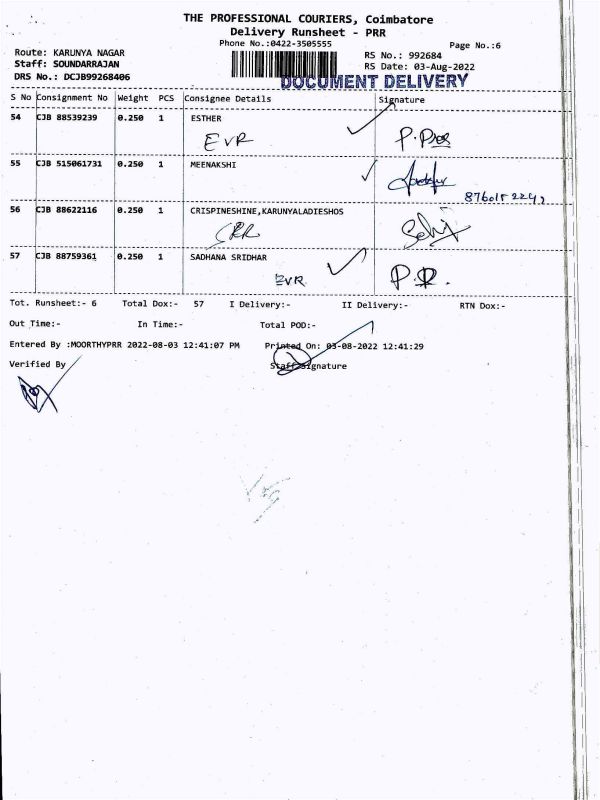 THE PROFESSIONAL COURIERS, Coimbatore
Delivery Runsheet - PRR
Phone No.:0422-3505555
Page No.:6
Route: KARUNYA NAGAR
RS No.: 992684
Staff: SOUNDARRAJAN
RS Date: 03-Aug-2022
DRS No.: DCJB99268406
DOCUMENT DELIVERY
S No Consignment No Weight PCS Consignee Details Signature
54 CJB 88539239 0.250 1 ESTHER
EVR
55 CJB 515061731 0.250 1 MEENAKSHI
56 CJB 88622116 0.250 1 CRISPINESHINE,KARUNYALADIESHOS
57 CJB 88759361 0.250 1 SADHANA SRIDHAR
EVR
Tot. Runsheet:- 6 Total Dox:- 57 I Delivery:- II Delivery:- RTN Dox:-
Out Time:- In Time:- Total POD:-
Entered By :MOORTHYPRR 2022-08-03 12:41:07 PM Printed On: 03-08-2022 12:41:29
Verified By Staff Signature